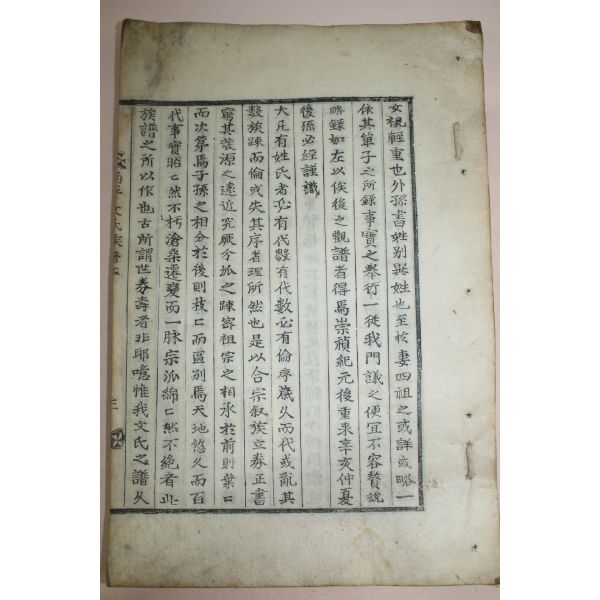 女視輕重也外孫書姓別異姓也至於妻四祖之或詳或略一
依其單子之所錄事實之擧行一從我門議之便宜不容贅說
略錄如左以俟後之觀譜者得焉崇禎紀元後重柬辛亥仲夏
後孫必經謹識
大凡有姓氏者必有代數有代數必有倫序歲久而代或亂其
數族踈而倫或失其序者理所然也是以合宗叙族立券正書
窮其發源之遠近究厥分派之踈密祖宗之相承於前則葉匕
而次第焉子孫之相分於後則枝匕而區別焉天地悠久而百
代事實昭匕然不朽滄桑遷變而一脉宗派綿匕然不絶者此
族譜之所以作也古所謂世券壽者非耶噫惟我文氏之譜久
南平文氏族譜序
三